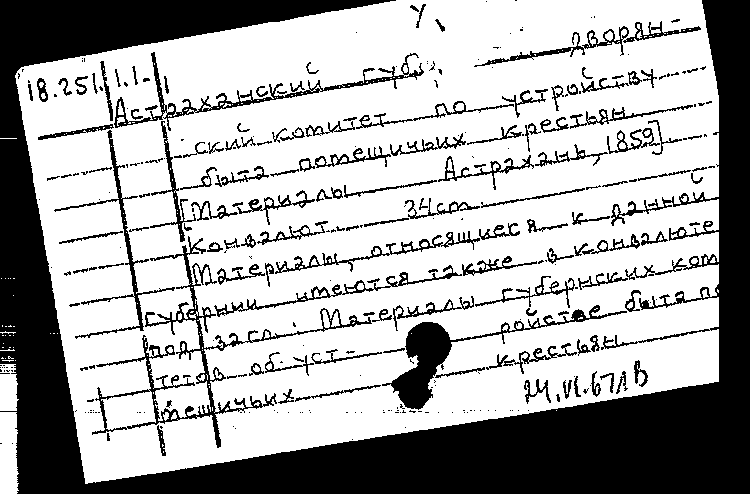 У,
18.251.1.1.
Астраханский губ. дворян-
ский комитет по устройству
быта помещичьих крестьян.
[Материалы. Астрахань, 1859].
Конвалют. 34cm.
Материалы, относящиеся к данной
губернии имеются также в конвалюте
под загл.: Материалы губернских ком
тетов об уст- ройстве быта по
мещичьих крестьян.
24.VI.67